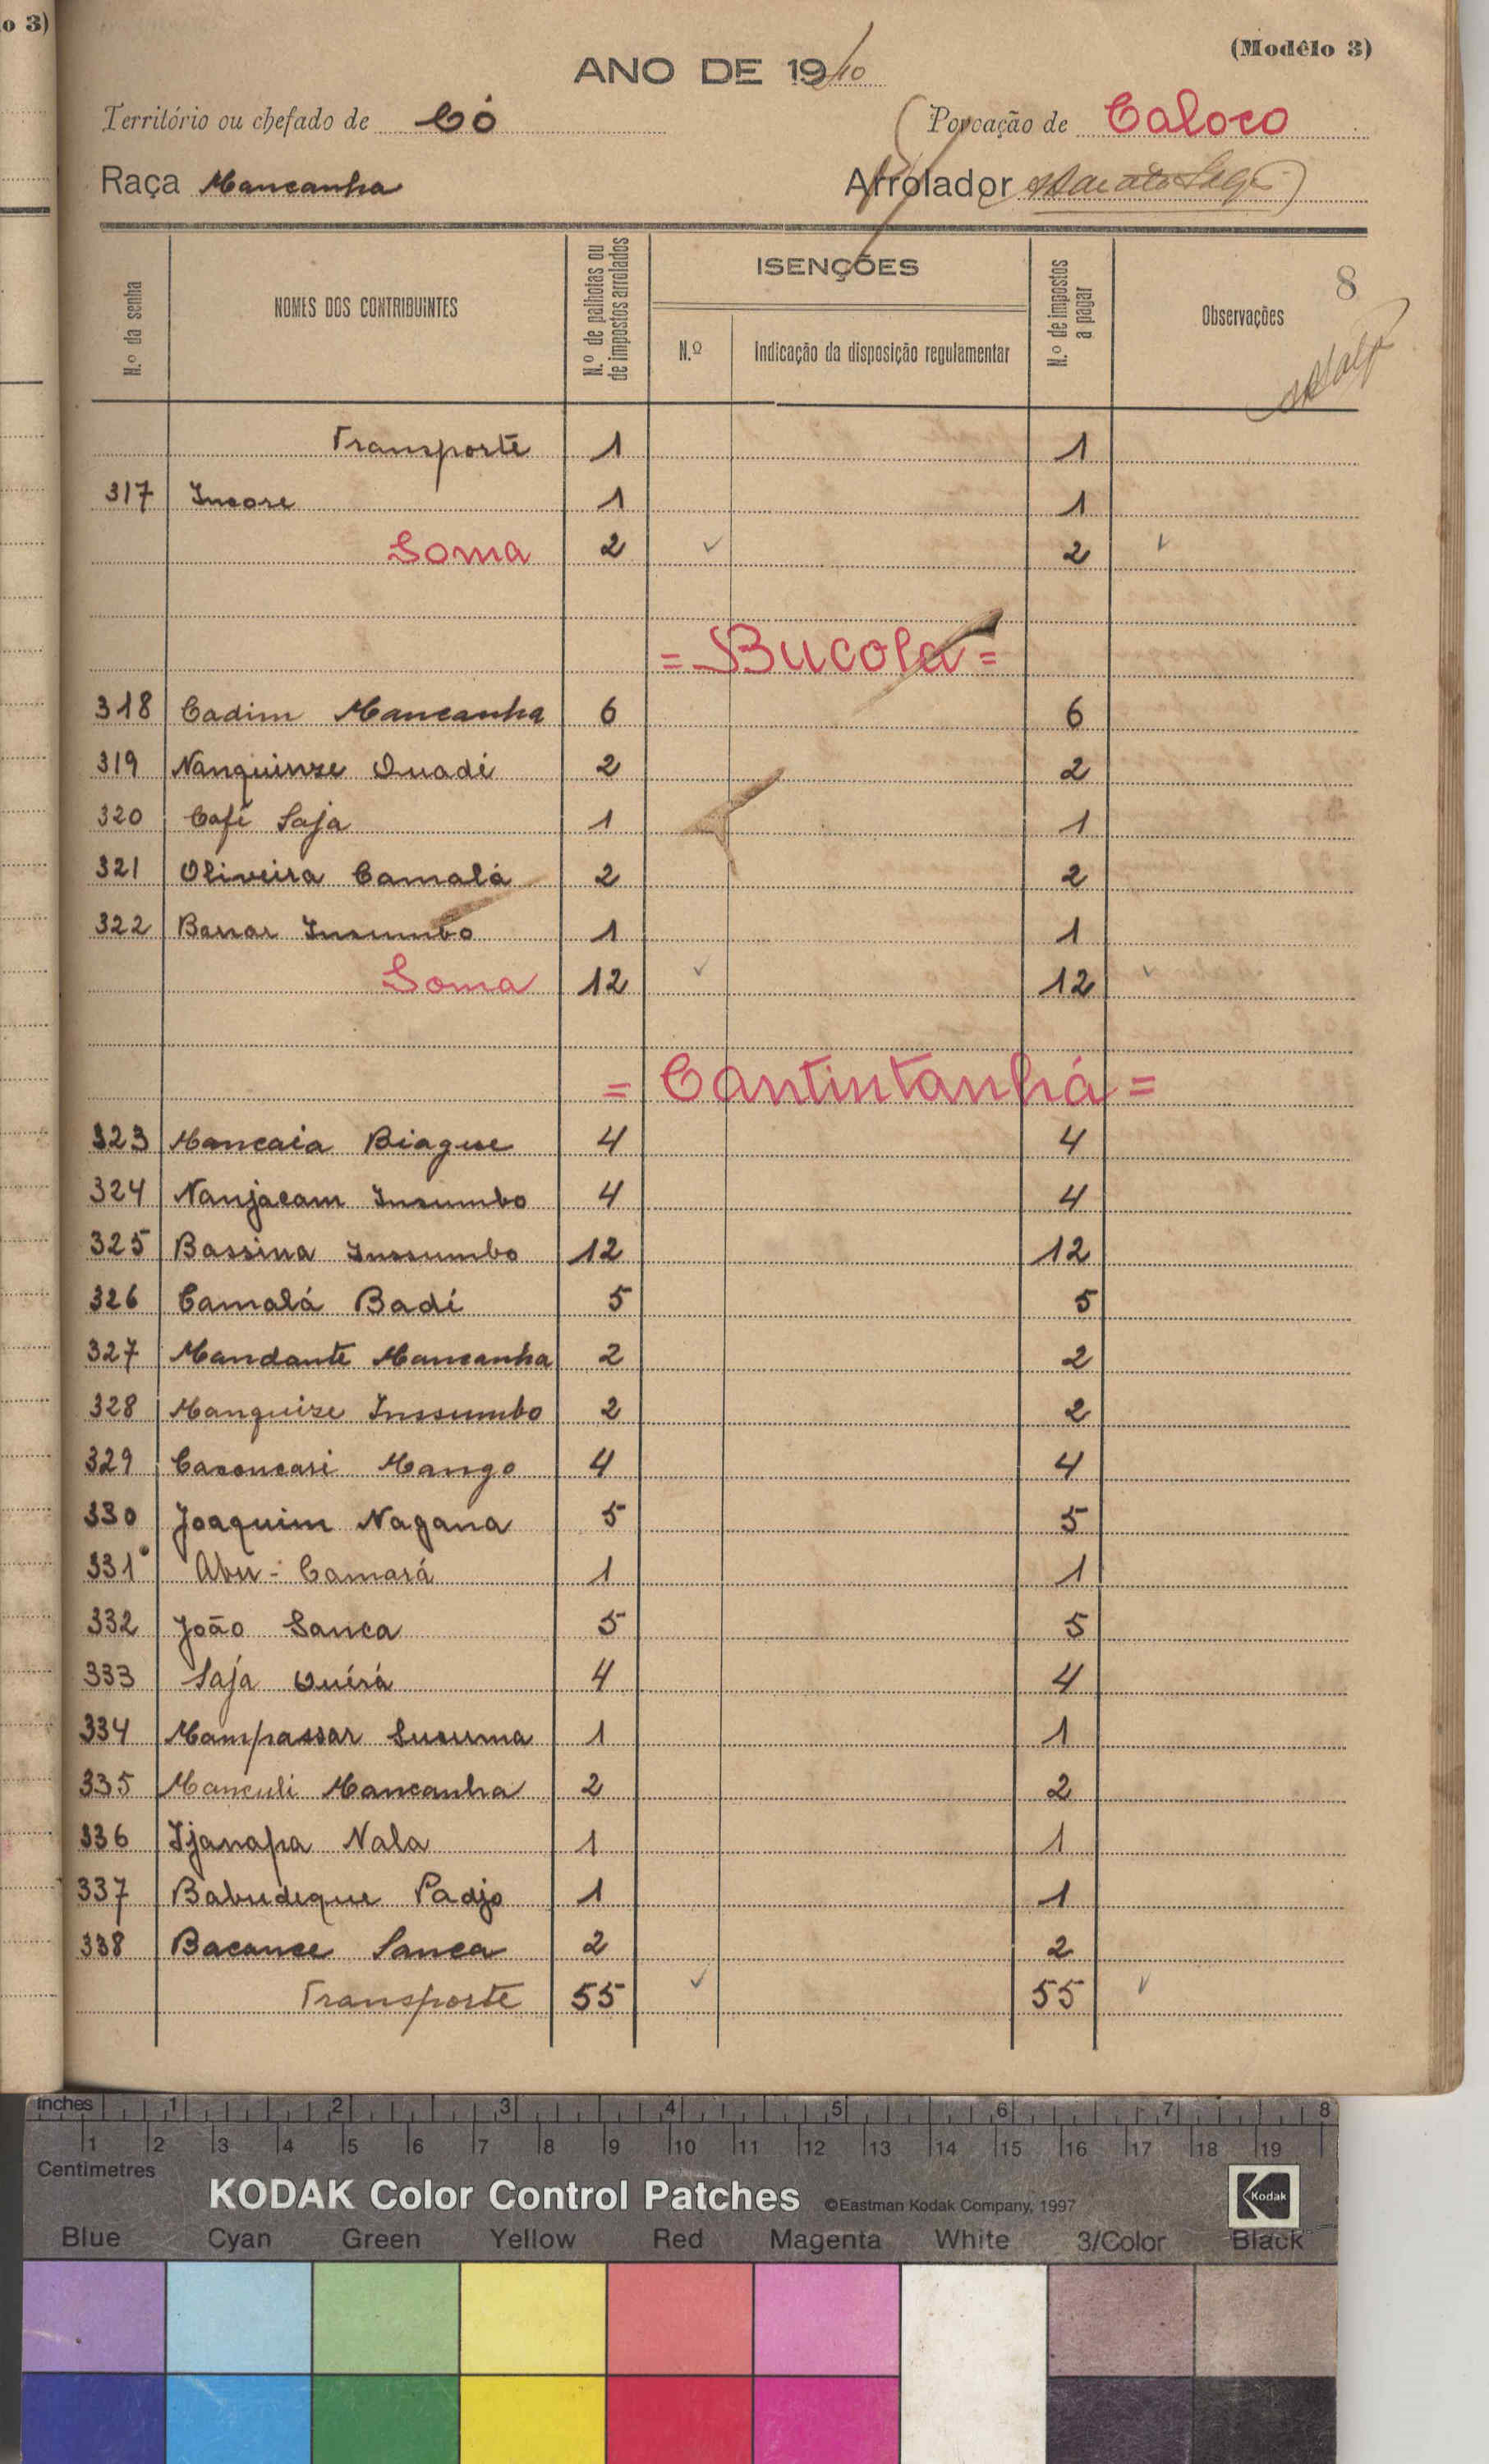 o 3)
(Modêlo 3)
ANO DE 1940
Território ou chefado de Có
Povoação de Caloco
Raça Mancanha
Arrolador
N.º da senha
NOMES DOS CONTRIBUINTES
N.º de palhotas ou de impostos arrolados
ISENÇÕES
N.º
Indicação da disposição regulamentar
N.º de impostos a pagar
Observações
8
Transporte 1 1
317 Incore 1 1
Soma 2 2
= Bucola =
318 Cadim Mancanha 6 6
319 Nanquinze Quadé 2 2
320 Café Saja 1 1
321 Oliveira Camalá 2 2
322 Barrar Insumbo 1 1
Soma 12 12
= Cantintanhá =
323 Mancaia Biague 4 4
324 Nanjacam Insumbo 4 4
325 Bassina Inssumbo 12 12
326 Camalá Badé 5 5
327 Mandante Mancanha 2 2
328 Manquize Inssumbo 2 2
329 Casoncari Mango 4 4
330 Joaquim Nagana 5 5
331 Abú - Camará 1 1
332 João Sanca 5 5
333 Saja Quérá 4 4
334 Mampassar Susuma 1 1
335 Manculi Mancanha 2 2
336 Ijanapa Nala 1 1
337 Babudeque Padjo 1 1
338 Bacance Sanca 2 2
Transporte 55 55
Inches 1 2 3 4 5 6 7 8
1 2 3 4 5 6 7 8 9 10 11 12 13 14 15 16 17 18 19
Centimetres
KODAK Color Control Patches ©Eastman Kodak Company, 1997 Kodak
Blue Cyan Green Yellow Red Magenta White 3/Color Black